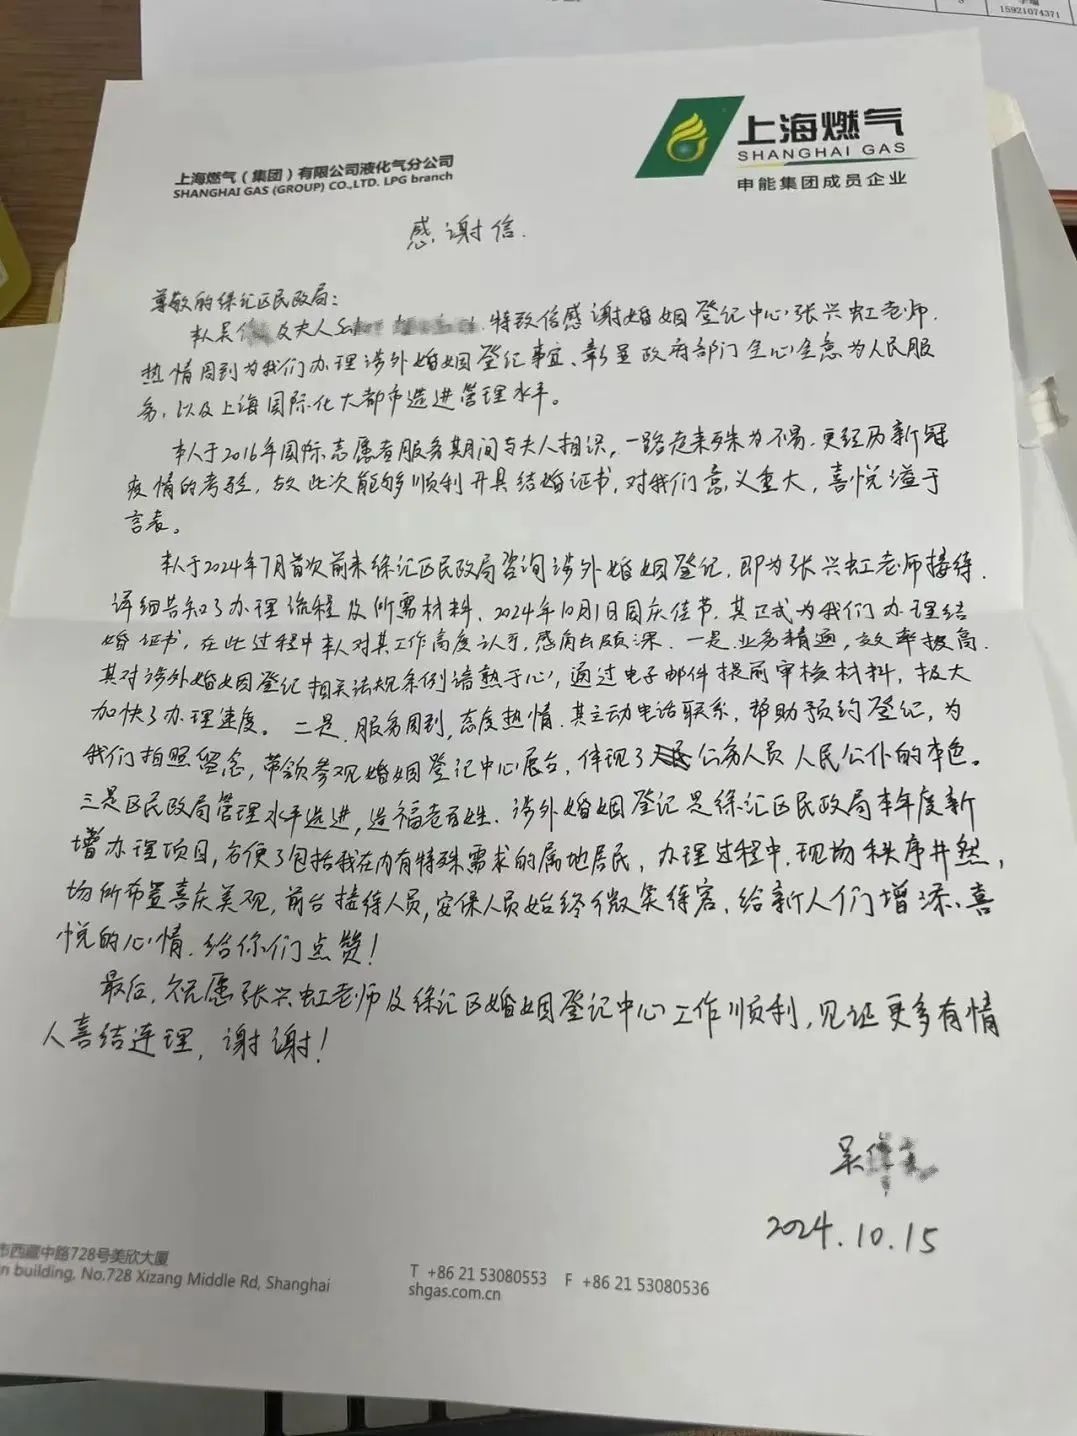 15921074371
上海燃气
SHANGHAI GAS
申能集团成员企业
上海燃气（集团）有限公司液化气分公司
SHANGHAI GAS (GROUP) CO.,LTD. LPG branch
感谢信
尊敬的徐汇区民政局：
本人吴 及夫人 特致信感谢婚姻登记中心张兴虹老师.
热情周到为我们办理涉外婚姻登记事宜、彰显政府部门全心全意为人民服
务，以及上海国际化大都市先进管理水平。
本人于2016年国际志愿者服务期间与夫人相识，一路走来殊为不易.更经历新冠
疫情的考验，故此次能够顺利开具结婚证书，对我们意义重大，喜悦溢于
言表。
本人于2024年7月首次前来徐汇区民政局咨询涉外婚姻登记，即为张兴虹老师接待.
详细告知了办理流程及所需材料、2024年10月1日国庆佳节.其正式为我们办理结
婚证书，在此过程中本人对其工作高度认可，感用颇深.一是.业务精通，效率极高.
其对涉外婚姻登记相关法规条例谙熟于心，通过电子邮件提前审核材料，极大
加快了办理速度。二是.服务周到，态度热情.其主动电话联系，帮助预约登记，为
我们拍照留念，带领参观婚姻登记中心展台，体现了公务人员人民公仆的本色。
三是区民政局管理水平先进，造福老百姓.涉外婚姻登记是徐汇区民政局本年度新
增办理项目，方便了包括我在内有特殊需求的属地居民，办理过程中.现场秩序井然，
场所布置喜庆美观，前台接待人员，安保人员始终微笑待客、给新人们增添喜
悦的心情.给你们点赞！
最后，祝愿张兴虹老师及徐汇区婚姻登记中心工作顺利，见证更多有情
人喜结连理，谢谢！
吴
2024.10.15
市西藏中路728号美欣大厦
n building, No.728 Xizang Middle Rd, Shanghai
T +86 21 53080553 F +86 21 53080536
shgas.com.cn